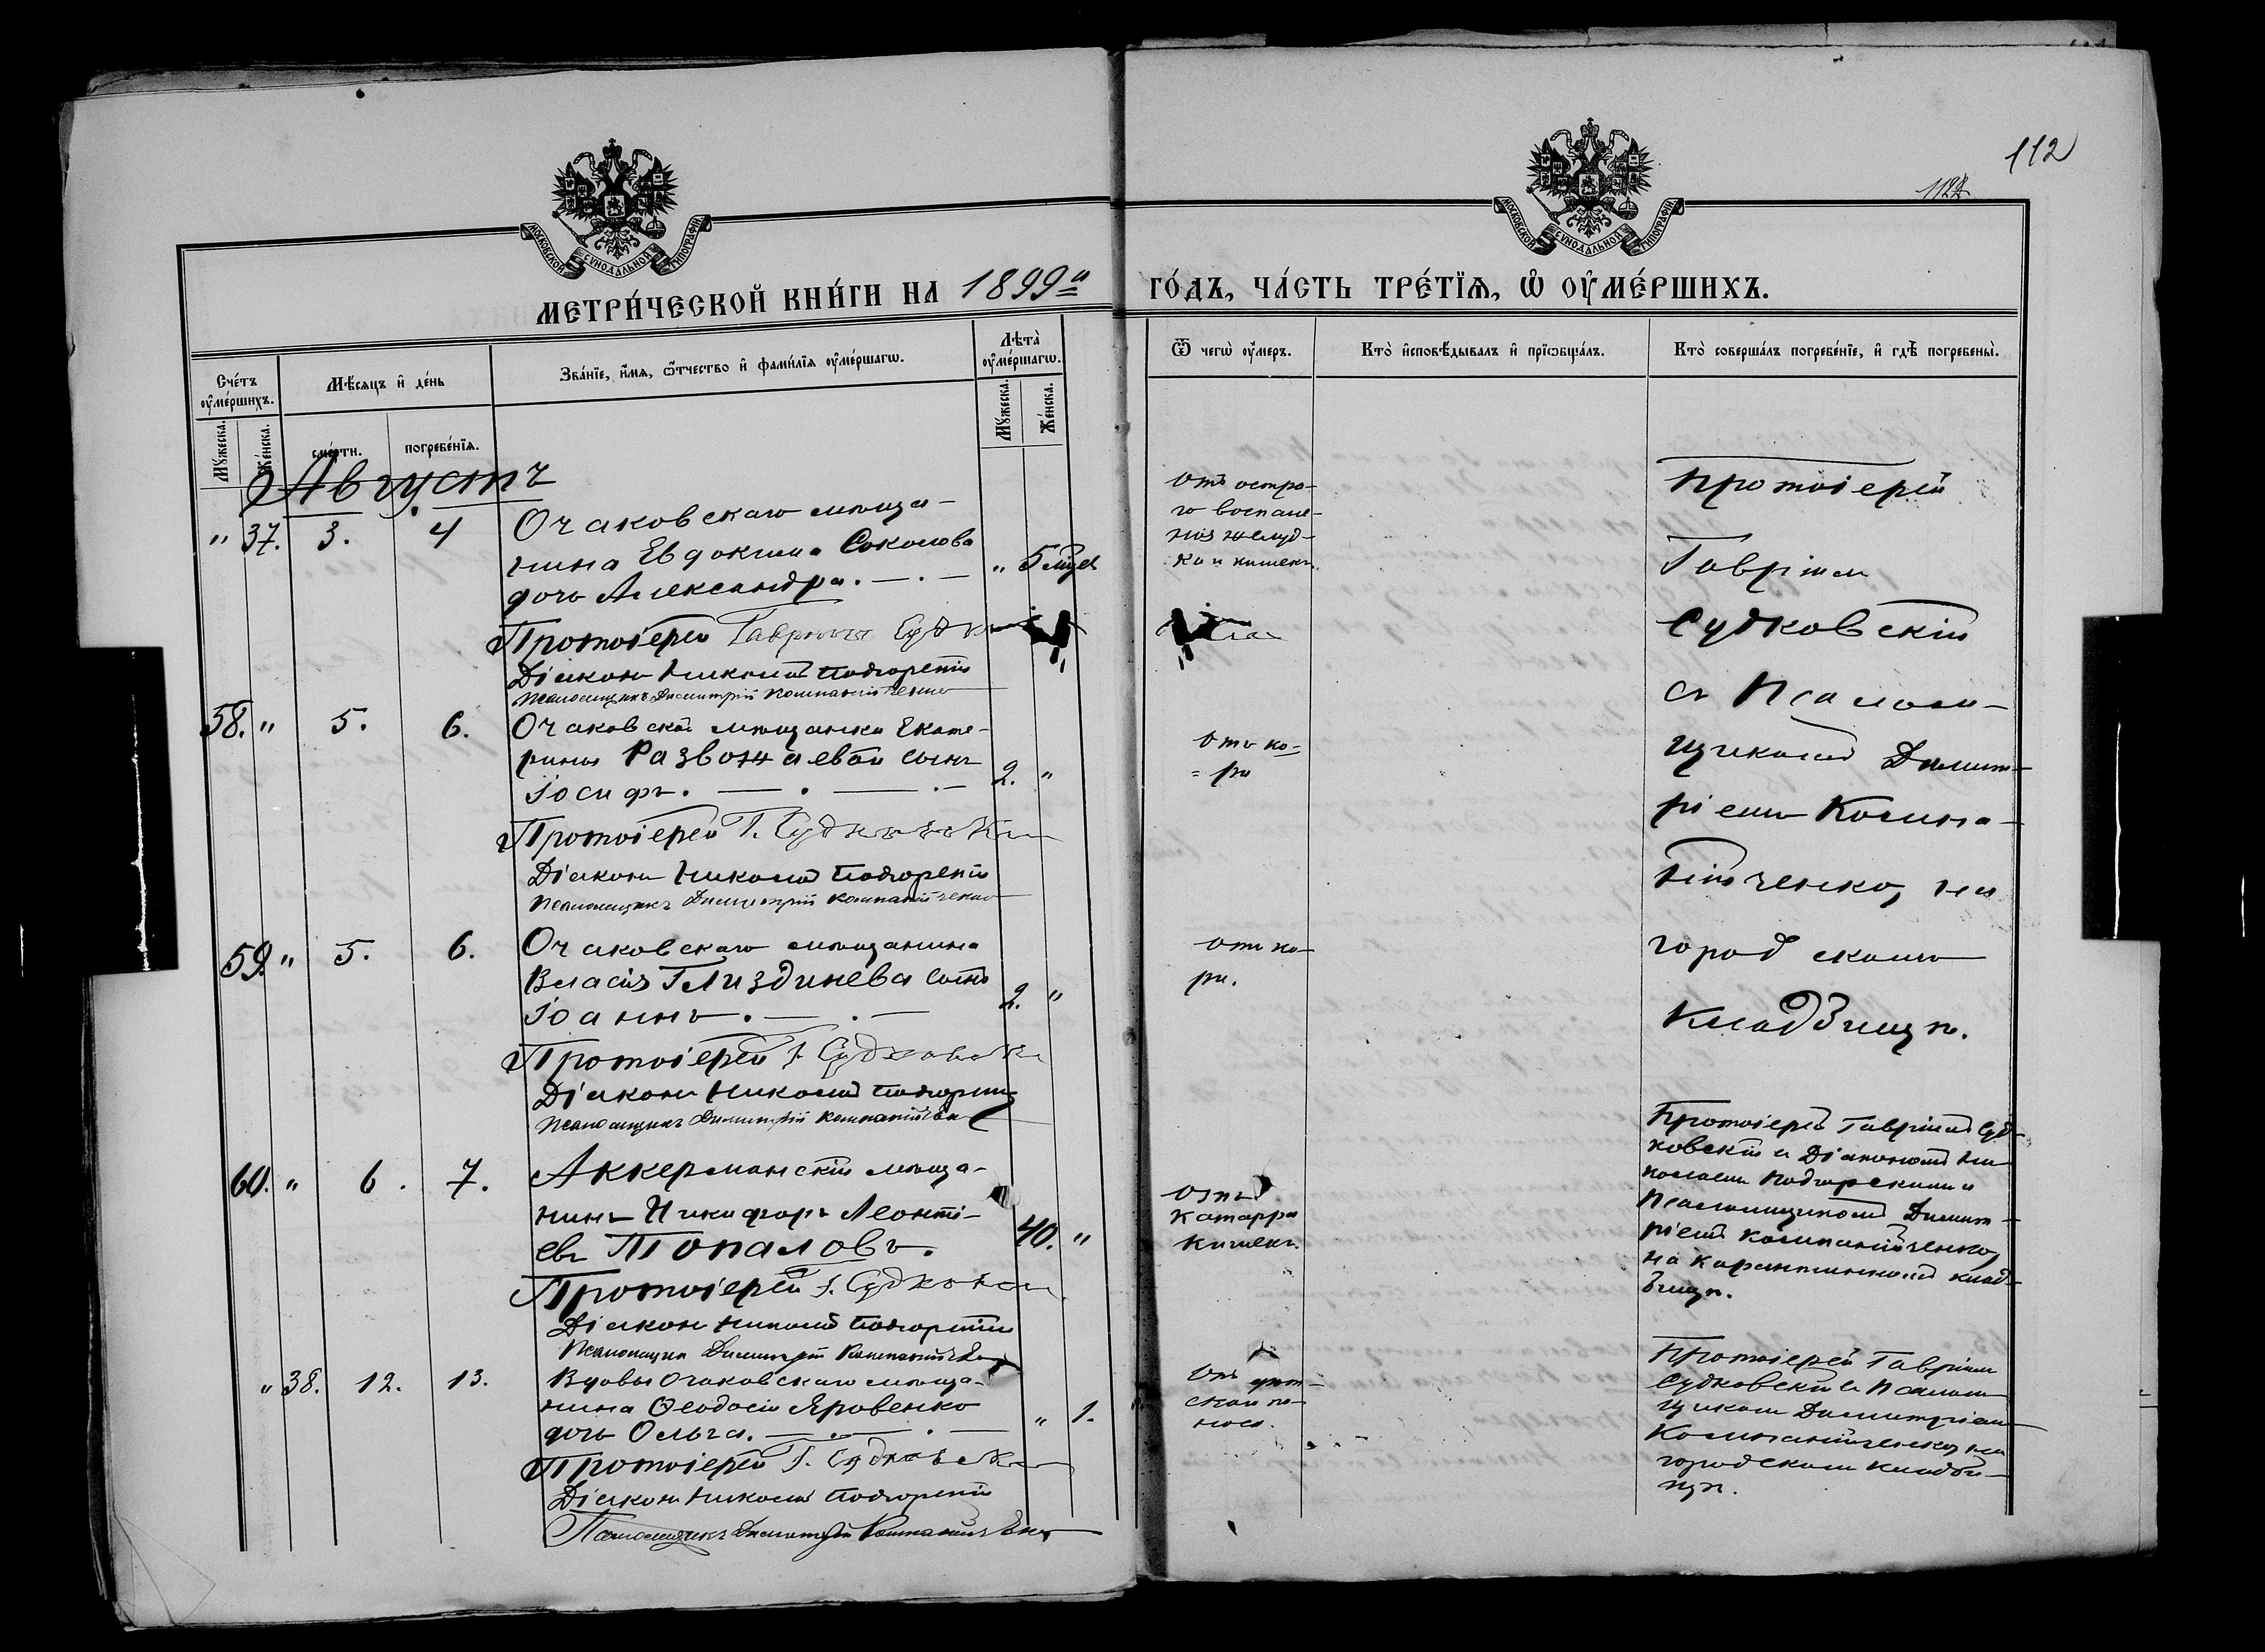 112
МОСКОВСКОЙ СѴНОДАЛЬНОЙ ТИПОГРАФІИ
МОСКОВСКОЙ СѴНОДАЛЬНОЙ ТИПОГРАФІИ
МЕТРИ́ЧЕСКОЙ КНИ́ГИ НА 1899й
ГО́ДЪ, ЧА́СТЬ ТРЕ́ТІѦ, Ѡ ОУМЕ́РШИХЪ.
Сче́тъ оумершихъ.
Мѣсяцъ и де́нь
Зва́ніе, имя, ѿчество и фами́лія оумершагѡ.
Лѣта оумершагѡ.
Ѿ чегѡ оумеръ.
Кто исповѣдывалъ и пріѡбщалъ.
Кто соверша́лъ погребе́ніе, и гдѣ погребены.
Мужеска.
Женска.
смерти.
погребе́нія.
Мужеска.
Женска.
Августъ
" 37. 3. 4
Очаковскаго мѣща-
нина Евдокима Соколова
дочь Александра.
" 5 мѣс.
Отъ остра-
го воспале-
нія желуд-
ка и кишекъ.
Протоіерей
Гавріилъ
Судковскій
съ Псалом-
щикомъ Димит-
ріемъ Компа-
нійченко, на
городскомъ
кладбищѣ.
Протоіерей Гавріилъ
Діаконъ Николай Подгорскій
Псаломщикъ Димитрій Компанійченко
58. " 5. 6.
Очаковской мѣщанки Екате-
рины Развожаевой сынъ
Іосифъ.
2. "
Отъ ко-
ри
Протоіерей Г. Судковскій
Діаконъ Николай Подгорскій
Псаломщикъ Димитрій Компанійченко
59. " 5. 6.
Очаковскаго мѣщанина
Власія Глиздинева сынъ
Іоаннъ.
2. "
Отъ ко-
ри.
Протоіерей Г. Судковскій
Діаконъ Николай Подгорскій
Псаломщикъ Димитрій Компанійченко
60. " 6. 7.
Аккерманскій мѣща-
нинъ Никифоръ Леонті-
евъ Топаловъ.
40. "
Отъ
катарра
кишекъ.
Протоіерей Гавріилъ Суд-
ковскій съ Діакономъ Ни-
колаемъ Подгорскимъ и
Псаломщикомъ Димит-
ріемъ Компанійченко,
на карантинномъ клад-
бищѣ.
Протоіерей Г. Судковскій
Діаконъ Николай Подгорскій
Псаломщикъ Димитрій Компанійченко
" 38. 12. 13.
Вдовы Очаковскаго мѣща-
нина Ѳеодосіи Яровенко
дочь Ольга.
" 1.
Отъ дѣт-
скаго по-
носа.
Протоіерей Гавріилъ
Судковскій съ Псалом-
щикомъ Димитріемъ
Компанійченко, на
городскомъ кладби-
щѣ.
Протоіерей Г. Судковскій
Діаконъ Николай Подгорскій
Псаломщикъ Димитрій Компанійченко